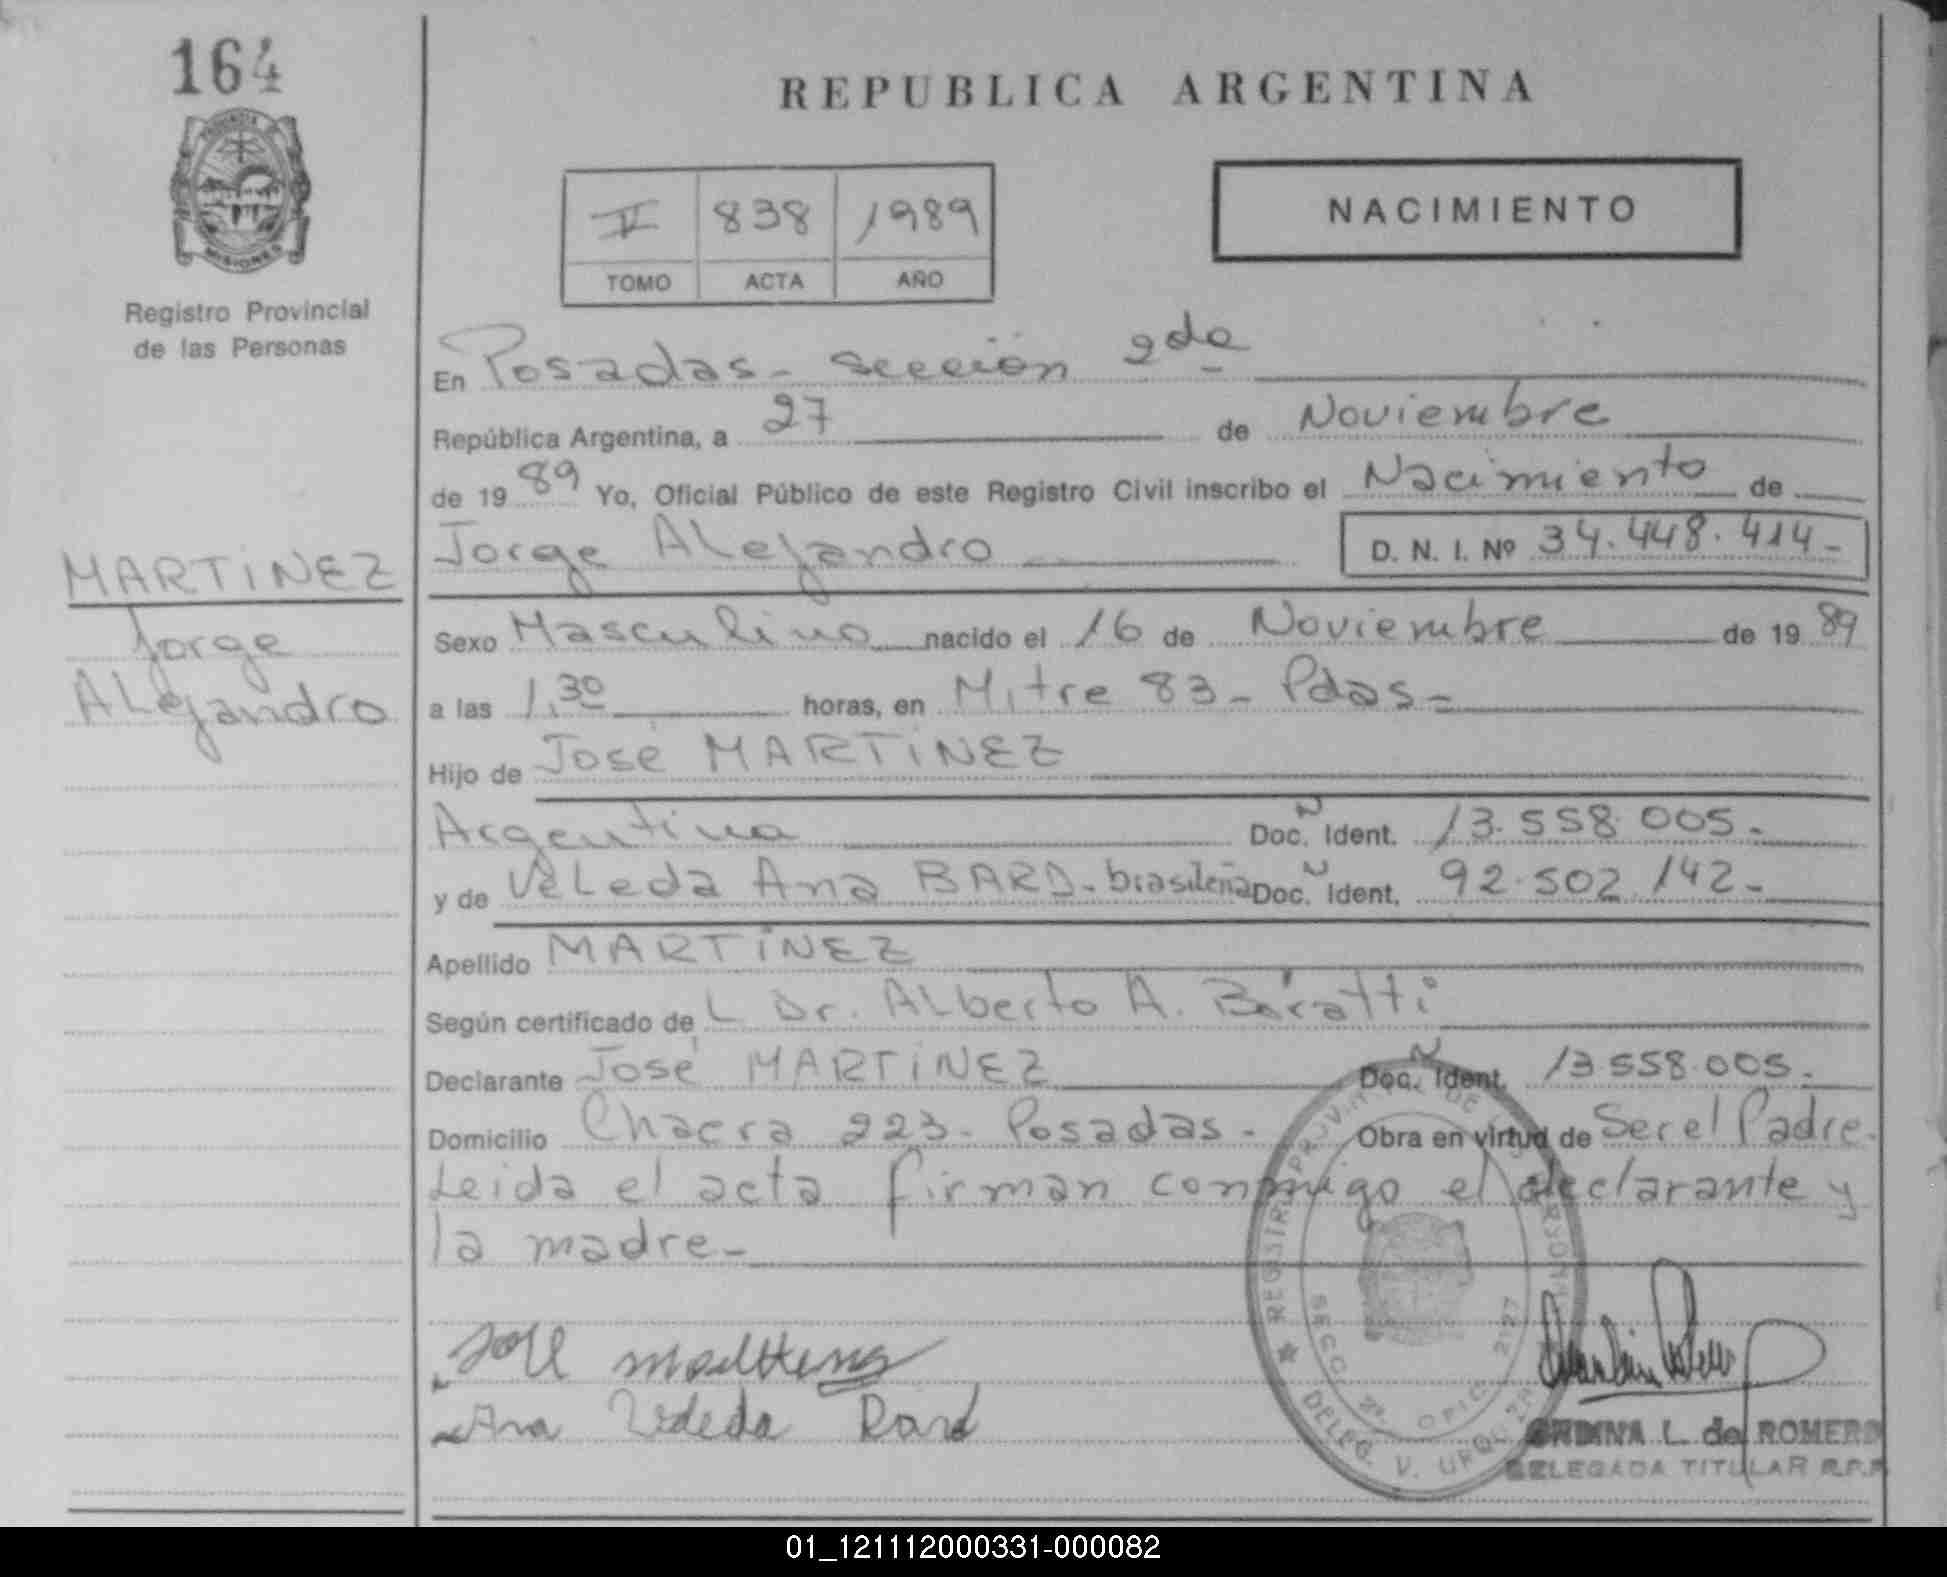 164
REPUBLICA ARGENTINA
PROVINCIA DE
MISIONES
Registro Provincial
de las Personas
V 838 1989
TOMO ACTA AÑO
NACIMIENTO
En Posadas - sección 2da
República Argentina, a 27 de Noviembre
de 1989 Yo, Oficial Público de este Registro Civil inscribo el Nacimiento de
Jorge Alejandro D. N. I. Nº 34.448.414-
MARTINEZ
Jorge
Alejandro
Sexo Masculino nacido el 16 de Noviembre de 1989
a las 1,30 horas, en Mitre 83 - Pdas -
Hijo de José MARTINEZ
Argentina Doc. Ident. 13.558.005.
y de Veleda Ana BARD - brasileña Doc. Ident. 92.502.142-
Apellido MARTINEZ
Según certificado del Dr. Alberto A. Baratti
Declarante José MARTINEZ Doc. Ident. 13.558.005.
Domicilio Chacra 223 - Posadas - Obra en virtud de Ser el Padre.
Leida el acta firman conmigo el declarante y
la madre -
Ana Veleda Bard
REGISTRO PROVINCIAL DE LAS PERSONAS
SECC. 2ª. OFIC. 2127
DELEG. V. URQUIZA
L. de ROMERO
DELEGADA TITULAR R.P.P.
01_121112000331-000082